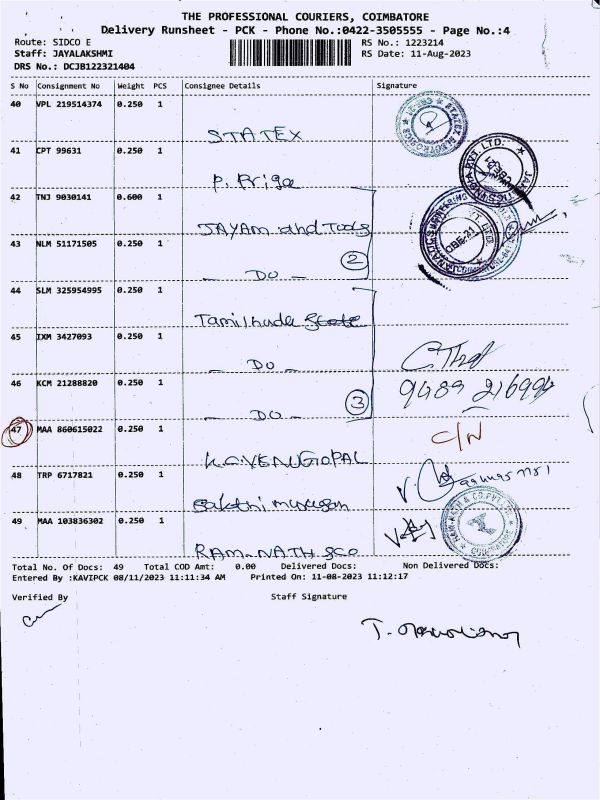 THE PROFESSIONAL COURIERS, COIMBATORE
Delivery Runsheet - PCK - Phone No.:0422-3505555 - Page No.:4
Route: SIDCO E
RS No.: 1223214
Staff: JAYALAKSHMI
RS Date: 11-Aug-2023
DRS No.: DCJB122321404
S No Consignment No Weight PCS Consignee Details Signature
40 VPL 219514374 0.250 1
STATEX
41 CPT 99631 0.250 1
P. Priya
42 TNJ 9030141 0.600 1
JAYAM and Tools
43 NLM 51171505 0.250 1
2
- DO -
44 SLM 325954995 0.250 1
Tamilnadu State
45 IXM 3427093 0.250 1
- DO -
46 KCM 21288820 0.250 1
3
- DO -
47 MAA 860615022 0.250 1 C/N
K.C.VENUGOPAL
48 TRP 6717821 0.250 1
Sakthi murugan
49 MAA 103836302 0.250 1
RAM NATH &CO
Total No. Of Docs: 49 Total COD Amt: 0.00 Delivered Docs: Non Delivered Docs:
Entered By :KAVIPCK 08/11/2023 11:11:34 AM Printed On: 11-08-2023 11:12:17
Verified By Staff Signature